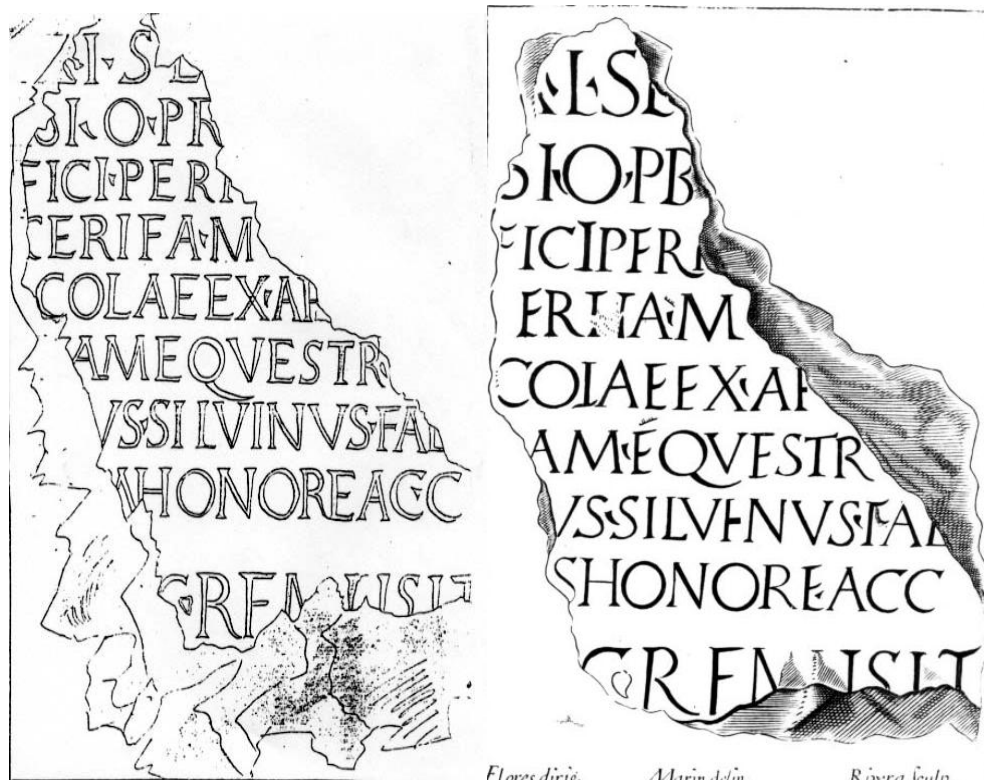 I·S
SI·O·PR
FICI·PERI
CERIFA·M
COLAEEX·AP
AMEQVESTR
VS·SILVINVS·FAL
HONOREACC
CREMUSIT
I·SL
SI·O·PB
FICIPERI
ERHA·M
COLAEEX·AP
AM·ÉQVESTR
VS·SILVINVS·FAL
SHONOREACC
CREMUSIT
Flores dirig. Marin delin. Rivera sculp.